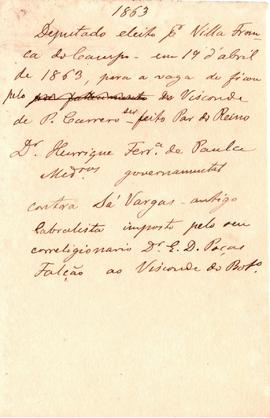 1863
Deputado eleito pr Villa Fran-
ca do Campo - em 19 d'abril
de 1863, para a vaga de ficou
pelo por fallecimento do Visconde
de P. Carrero ser feito Par do Reino
Dr. Henrique Ferra. de Paula
Medros governamental
contra Sá Vargas - antigo
Cabralista imposto pelo seu
correligionario Dr. E. D. Poças
Falcão ao Visconde do Boto.